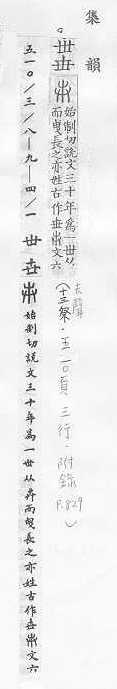 集韻
去聲
(十三祭·五一〇頁 三行·附錄 P.829)
世卋 始制切說文三十年為一世从
而曳長之亦姓古作卋文六
五一〇/三/八—九—四/一 世卋 始制切說文三十年為一世从卉而曳長之亦姓古作卋文六